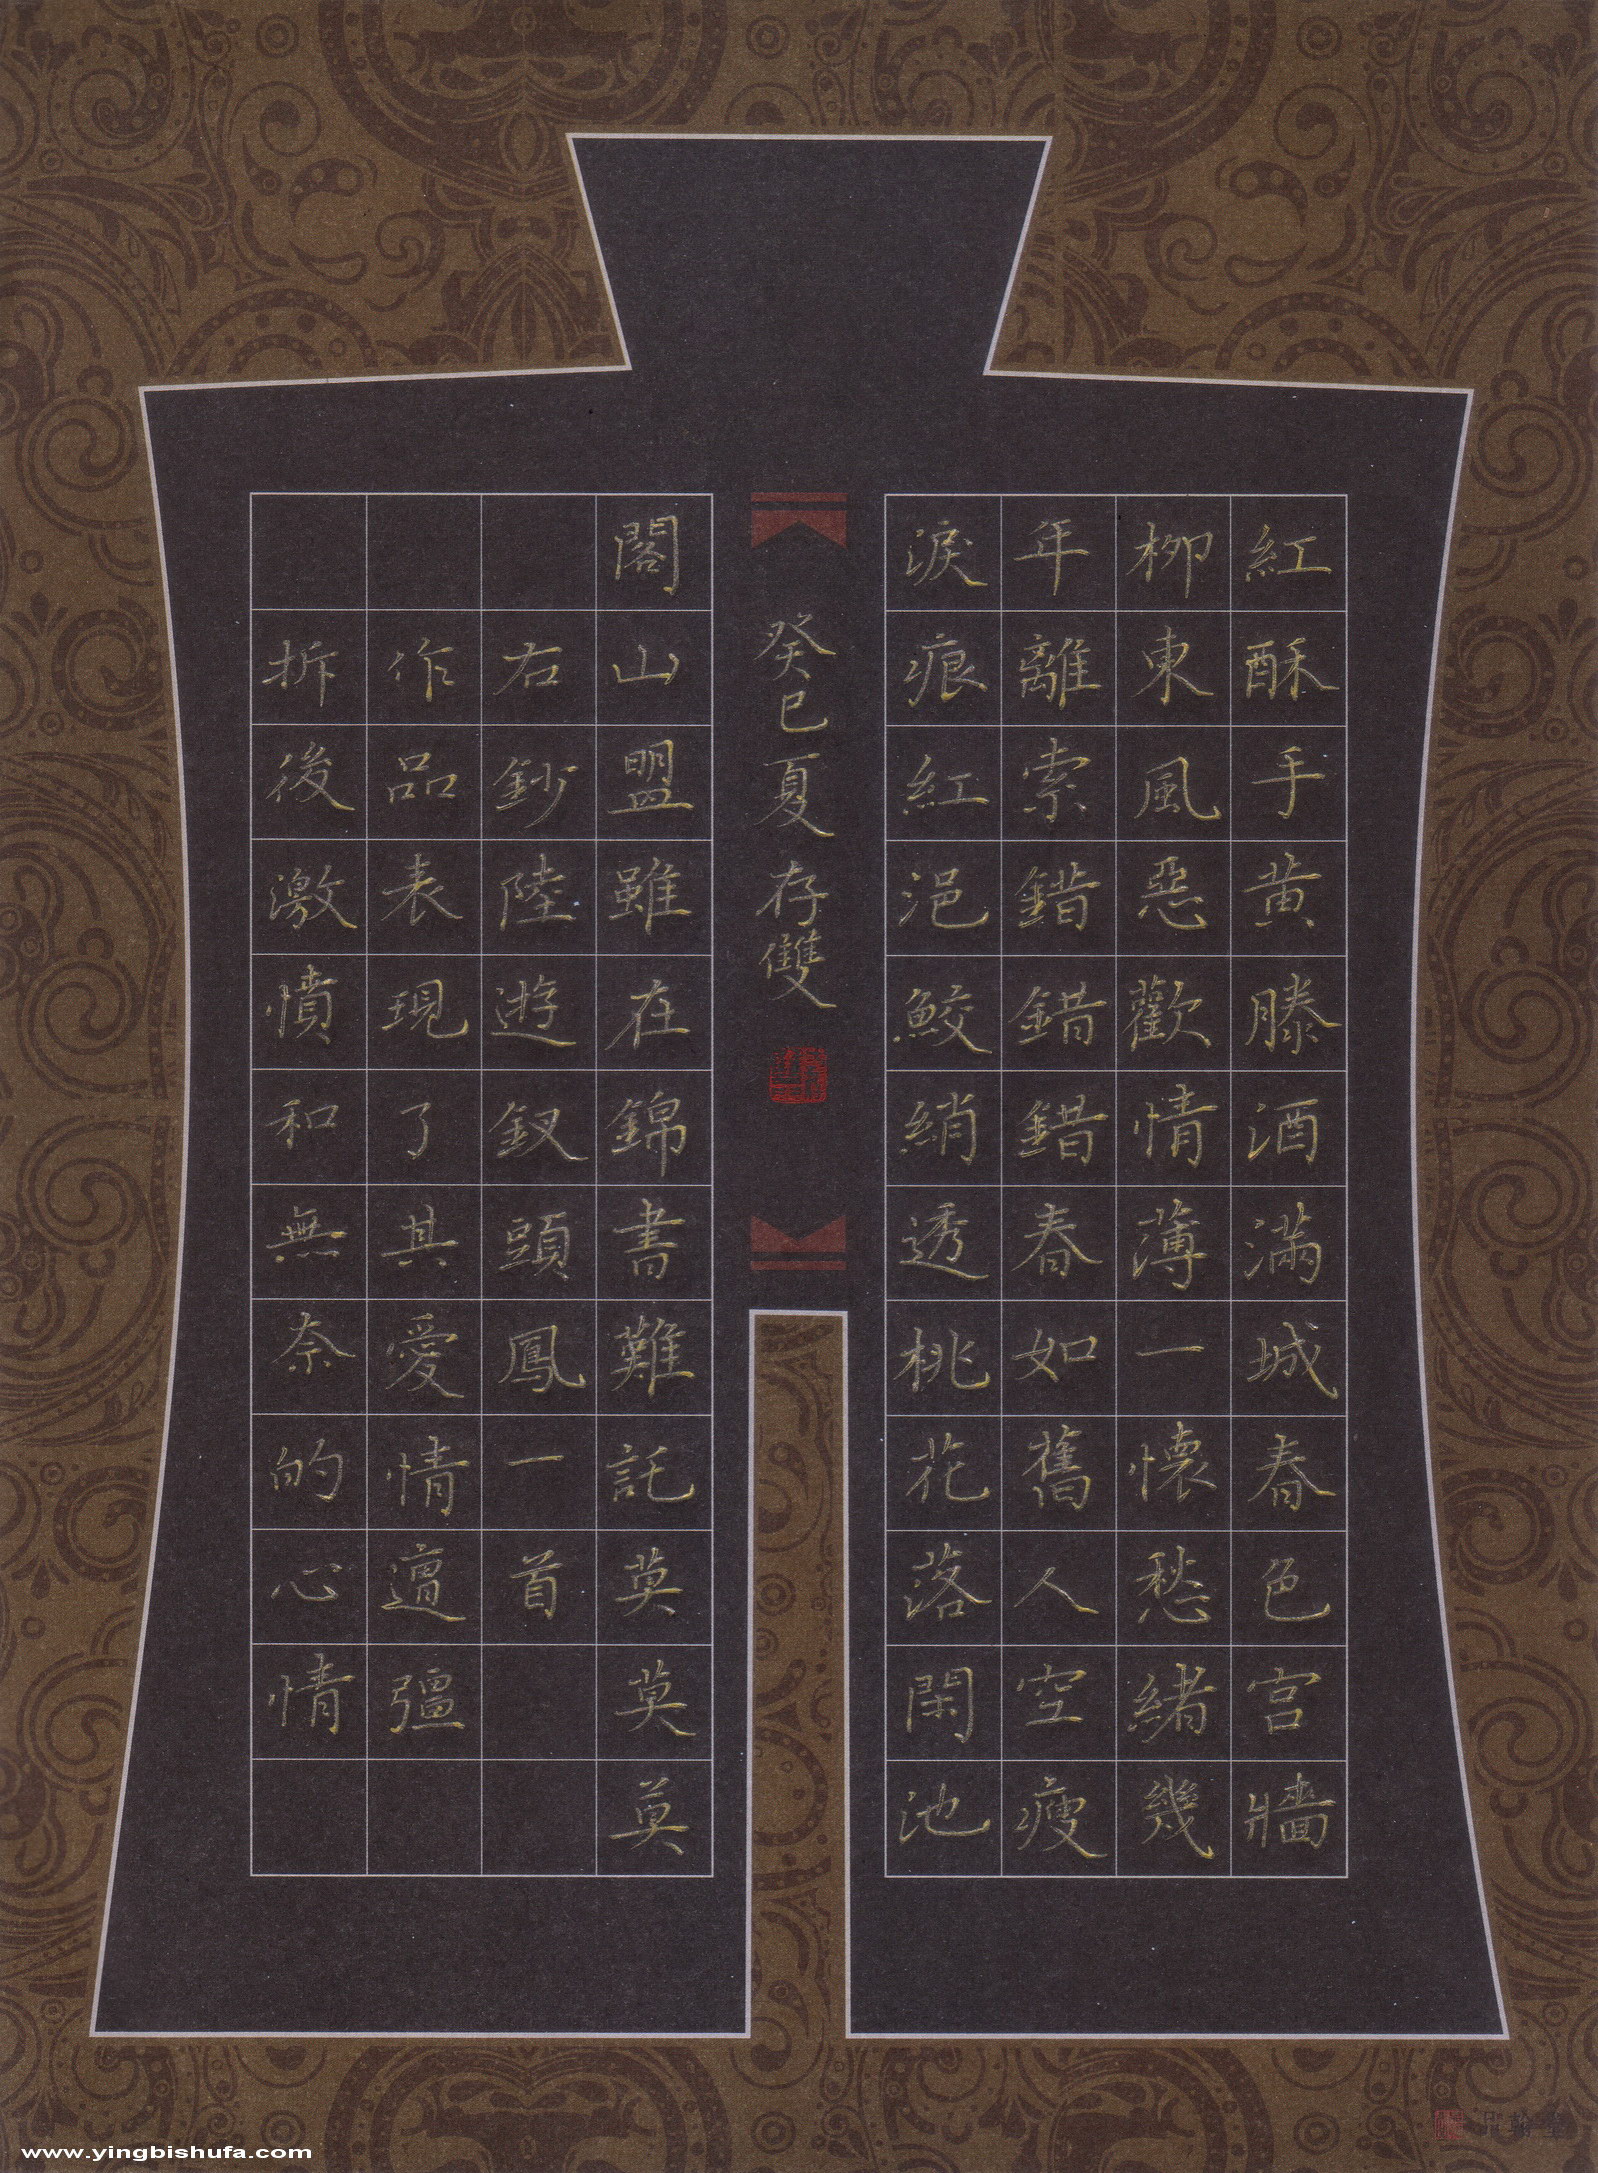 紅酥手黄滕酒滿城春色宫牆
柳東風惡歡情薄一懷愁緒幾
年離索錯錯錯春如舊人空瘦
淚痕紅浥鮫綃透桃花落閑池
閣山盟雖在錦書難託莫莫莫
右鈔陸遊釵頭鳳一首
作品表現了其愛情遭彊
拆後激憤和無奈的心情
癸巳夏存雙
www.yingbishufa.com